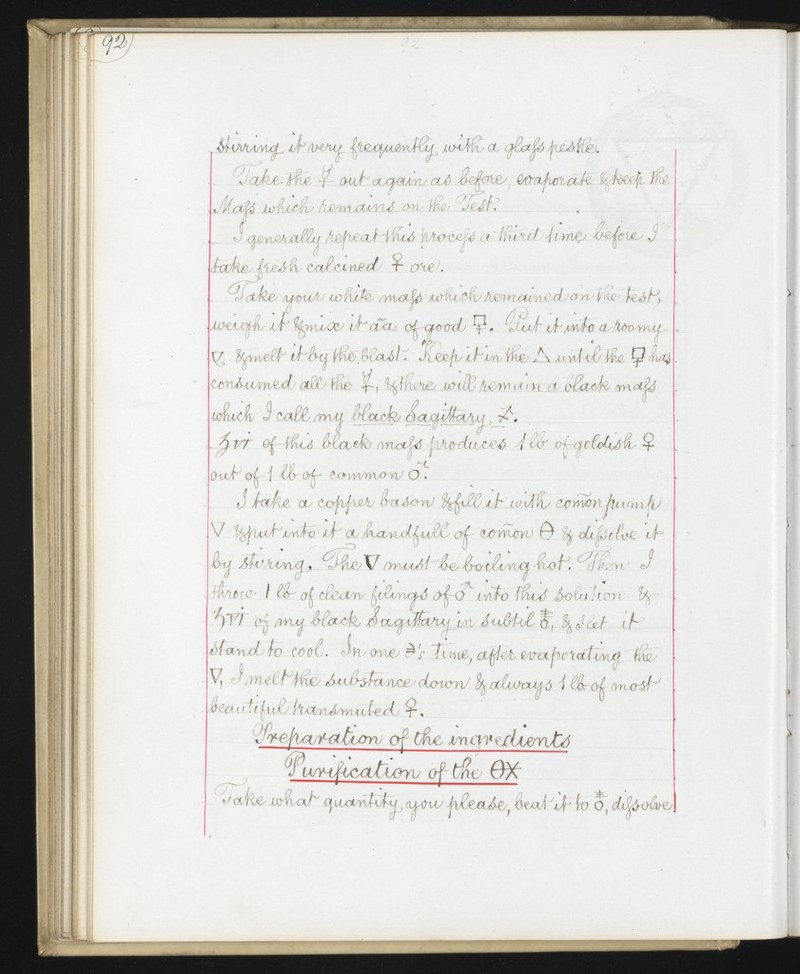 92
stirring it very frequently with a glaſs pestle.
Take the ☿ out again as before, evaporate & keep the
Maſs which remains on the Test.
I generally repeat this proceſs a third time before I
take fresh calcined ♀ ore.
Take your white maſs which remained on the test,
weigh it & mix it āā of good 🜐. Put it into a roomy
🜄 & melt it by the blast. Keep it in the △ until the has
consumed all the ☿, & there will remain a black maſs
which I call my black Sagittary, ♐.
℥vi of this black maſs produces 1 lb of goldish ♀
out of 1 lb of common ♂.
I take a copper bason & fill it with com̄on pump
▽ & put into it a handfull of com̄on ⊖ & diſsolve it
by stiring. The ▽ must be boiling hot. Then I
throw 1 lb of clean filings of ♂ into this solution &
℥vi of my black Sagittary in subtil, & I let it
stand to cool. In one 's time, after evaporating the
▽, I melt the substance down & always 1 lb of most
beautiful transmuted ♀.
Preparation of the ingredients
Purification of the ⊖X
Take what quantity you please, beat it to, diſsolve